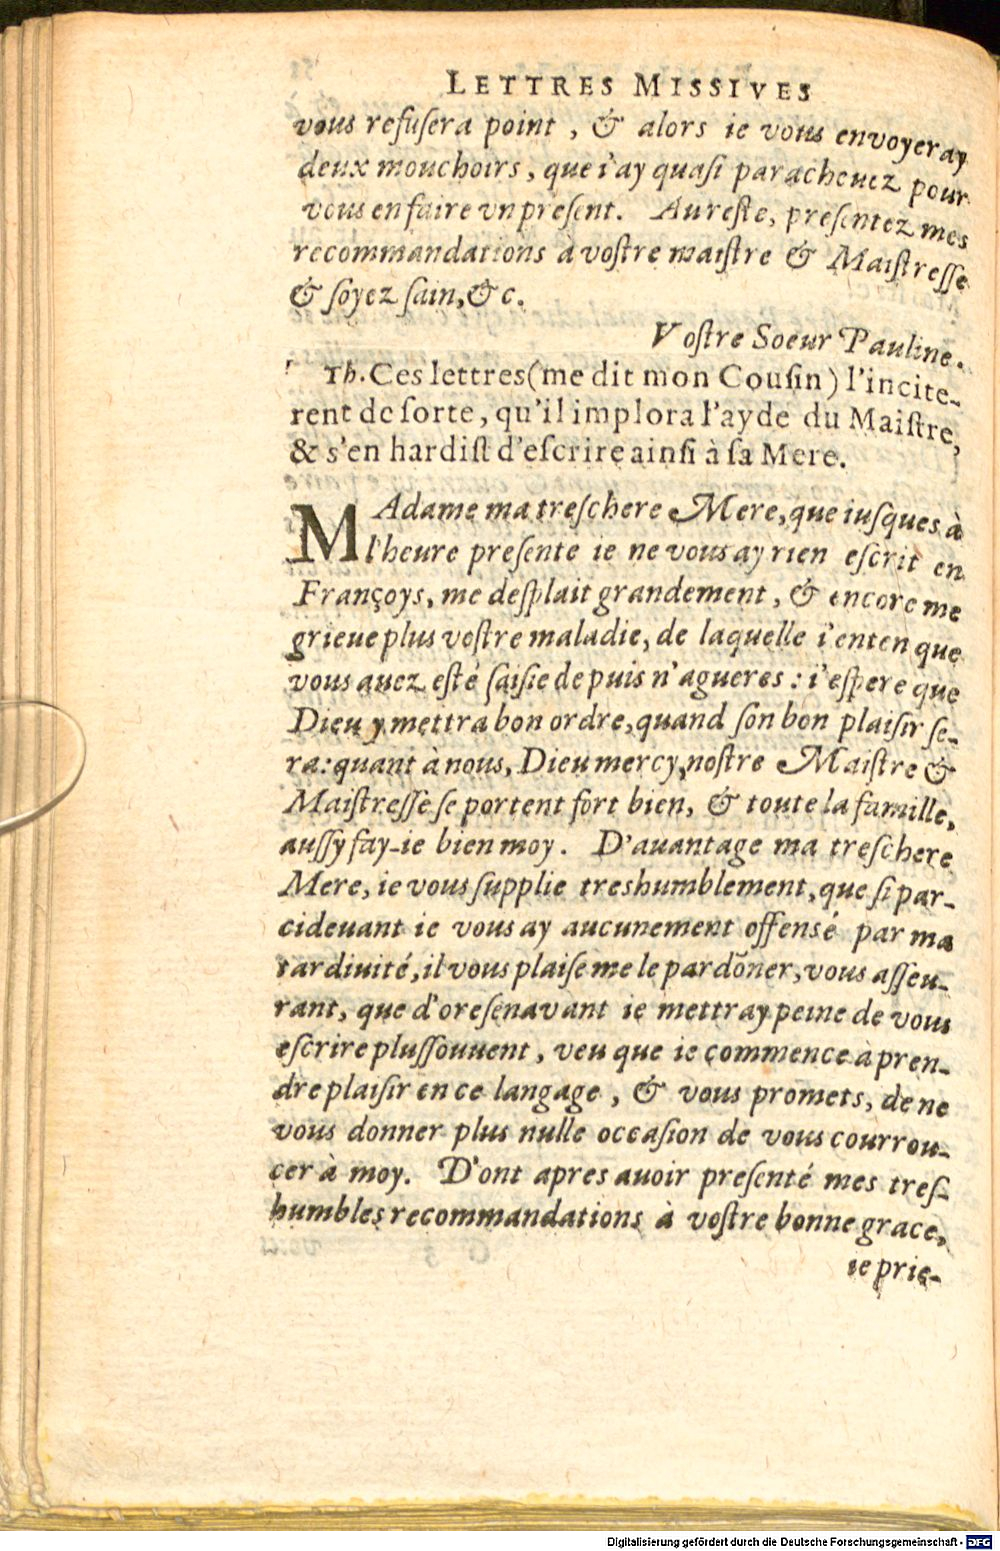 LETTRES MISSIVES
vous refuſera point, & alors ie vous envoyeray
deux mouchoirs, que i'ay quaſi parachevez pour
vous en faire vn preſent. Au reſte, preſentez mes
recommandations à voſtre maiſtre & Maiſtreſſe
& ſoyez ſain, &c.
Voſtre Soeur Pauline.
Th. Ces lettres (me dit mon Couſin) l'incite-
rent de ſorte, qu'il implora l'ayde du Maiſtre,
& s'en hardiſt d'eſcrire ainſi à ſa Mere.
MAdame ma treſchere Mere, que iuſques à
l'heure preſente ie ne vous ay rien eſcrit en
Françoys, me deſplait grandement, & encore me
grieue plus voſtre maladie, de laquelle i'enten que
vous auez eſté ſaiſie depuis n'agueres : i'eſpere que
Dieu y mettra bon ordre, quand ſon bon plaiſir ſe-
ra: quant à nous, Dieu mercy, noſtre Maiſtre &
Maiſtreſſe ſe portent fort bien, & toute la famille,
auſſy fay-ie bien moy. D'auantage ma treſchere
Mere, ie vous ſupplie treshumblement, que ſi par-
cideuant ie vous ay aucunement offensé par ma
tardiuité, il vous plaiſe me le pardõner, vous aſſeu-
rant, que d'oreſenavant ie mettray peine de vous
eſcrire pluſſouuent, veu que ie commence à pren-
dre plaiſir en ce langage, & vous promets, de ne
vous donner plus nulle occaſion de vous courrou-
cer à moy. D'ont apres auoir preſenté mes treſ-
humbles recommandations à voſtre bonne grace,
ie prie-
Digitalisierung gefördert durch die Deutsche Forschungsgemeinschaft - DFG